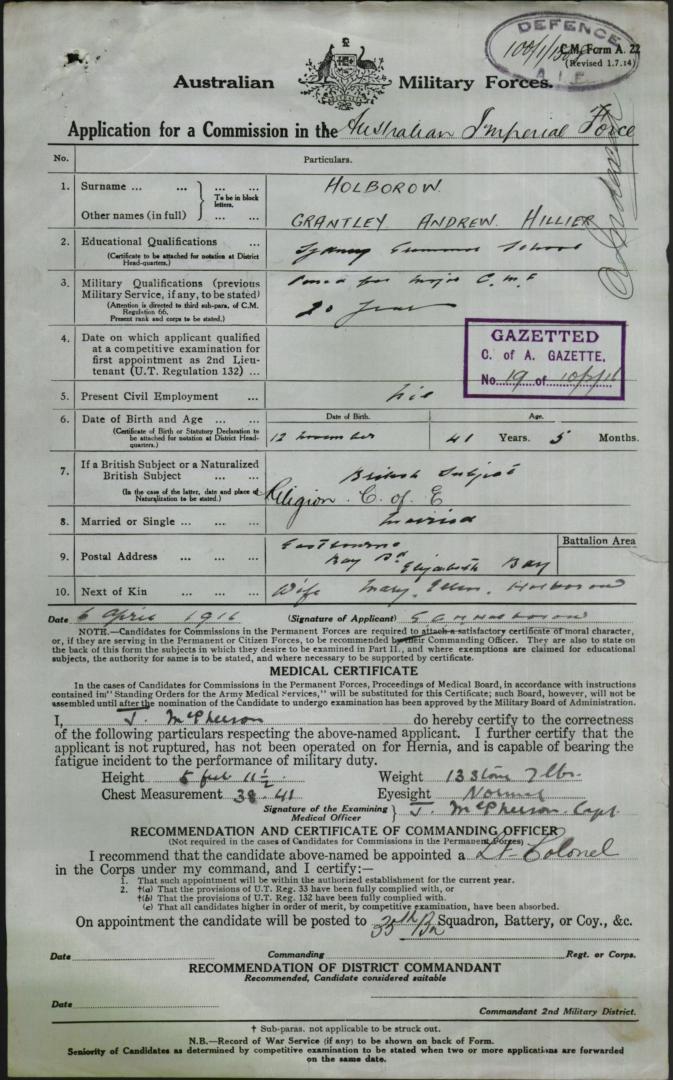 DEFENCE
100/1/
A.I.F.
C.M. Form A. 22
(Revised 1.7.14)
Australian Military Forces.
Application for a Commission in the Australian Imperial Force
No. Particulars.
1. Surname ... ... HOLBOROW
To be in block letters.
Other names (in full) ... ... GRANTLEY ANDREW HILLIER
2. Educational Qualifications ... Sydney Grammar School
(Certificate to be attached for notation at District
Head-quarters.)
3. Military Qualifications (previous Passed for Major C.M.F
Military Service, if any, to be stated) 20 Years
(Attention is directed to third sub-para. of C.M.
Regulation 66.
Present rank and corps to be stated.)
4. Date on which applicant qualified
at a competitive examination for
first appointment as 2nd Lieu-
tenant (U.T. Regulation 132) ...
GAZETTED
C. of A. GAZETTE,
No. 19 of
5. Present Civil Employment ...
6. Date of Birth and Age ... ...
(Certificate of Birth or Statutory Declaration to
be attached for notation at District Head-
quarters.)
Date of Birth. Age.
12 November 41 Years. 5 Months.
7. If a British Subject or a Naturalized
British Subject ... ... British Subject
(In the case of the latter, date and place of
Naturalization to be stated.)
Religion. C. of E
8. Married or Single ... ... ... Married
9. Postal Address ... ... ... Eastbourne
Bay Rd Elizabeth Bay
Battalion Area
10. Next of Kin ... ... ... Wife Mary Ellen Holborow
Date 6 April 1916 (Signature of Applicant) G A H Holborow
NOTE.—Candidates for Commissions in the Permanent Forces are required to attach a satisfactory certificate of moral character,
or, if they are serving in the Permanent or Citizen Forces, to be recommended by their Commanding Officer. They are also to state on
the back of this form the subjects in which they desire to be examined in Part II., and where exemptions are claimed for educational
subjects, the authority for same is to be stated, and where necessary to be supported by certificate.
MEDICAL CERTIFICATE
In the cases of Candidates for Commissions in the Permanent Forces, Proceedings of Medical Board, in accordance with instructions
contained in "Standing Orders for the Army Medical Services," will be substituted for this Certificate; such Board, however, will not be
assembled until after the nomination of the Candidate to undergo examination has been approved by the Military Board of Administration.
I, J. McPherson do hereby certify to the correctness
of the following particulars respecting the above-named applicant. I further certify that the
applicant is not ruptured, has not been operated on for Hernia, and is capable of bearing the
fatigue incident to the performance of military duty.
Height 5 feet 11½ Weight 13 Stone 7 lbs.
Chest Measurement 38. 41 Eyesight Normal
Signature of the Examining
Medical Officer J. McPherson Capt.
RECOMMENDATION AND CERTIFICATE OF COMMANDING OFFICER
(Not required in the cases of Candidates for Commissions in the Permanent Forces)
I recommend that the candidate above-named be appointed a Lt-Colonel
in the Corps under my command, and I certify:—
1. That such appointment will be within the authorized establishment for the current year.
2. †(a) That the provisions of U.T. Reg. 33 have been fully complied with, or
†(b) That the provisions of U.T. Reg. 132 have been fully complied with.
(c) That all candidates higher in order of merit, by competitive examination, have been absorbed.
On appointment the candidate will be posted to Squadron, Battery, or Coy., &c.
Date Commanding Regt. or Corps.
RECOMMENDATION OF DISTRICT COMMANDANT
Recommended, Candidate considered suitable
Date
Commandant 2nd Military District.
† Sub-paras. not applicable to be struck out.
N.B.—Record of War Service (if any) to be shown on back of Form.
Seniority of Candidates as determined by competitive examination to be stated when two or more applications are forwarded
on the same date.